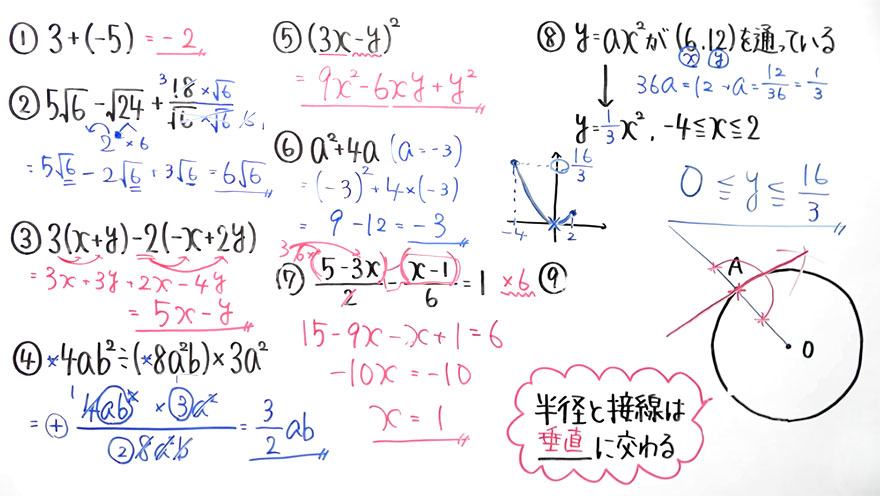 ① 3+(-5) = -2
② 5√6 - √24 + 18×√6/√6×√6
3
2 ×6
= 5√6 - 2√6 + 3√6 = 6√6
③ 3(x+y) - 2(-x+2y)
= 3x + 3y + 2x - 4y
= 5x - y
④ -4ab² ÷ (-8a²b) × 3a²
= + 4ab² × 3a² / 8a²b = 3/2 ab
1 1 2
⑤ (3x-y)²
= 9x² - 6xy + y²
⑥ a² + 4a (a = -3)
= (-3)² + 4×(-3)
= 9 - 12 = -3
⑦ (5-3x)/2 - (x-1)/6 = 1 ×6
15 - 9x - x + 1 = 6
-10x = -10
x = 1
⑧ y = ax² が (6,12) を通っている
x y
36a = 12 → a = 12/36 = 1/3
y = 1/3 x², -4 ≦ x ≦ 2
16/3
-4 2
0 ≦ y ≦ 16/3
⑨
A
O
半径と接線は
垂直に交わる